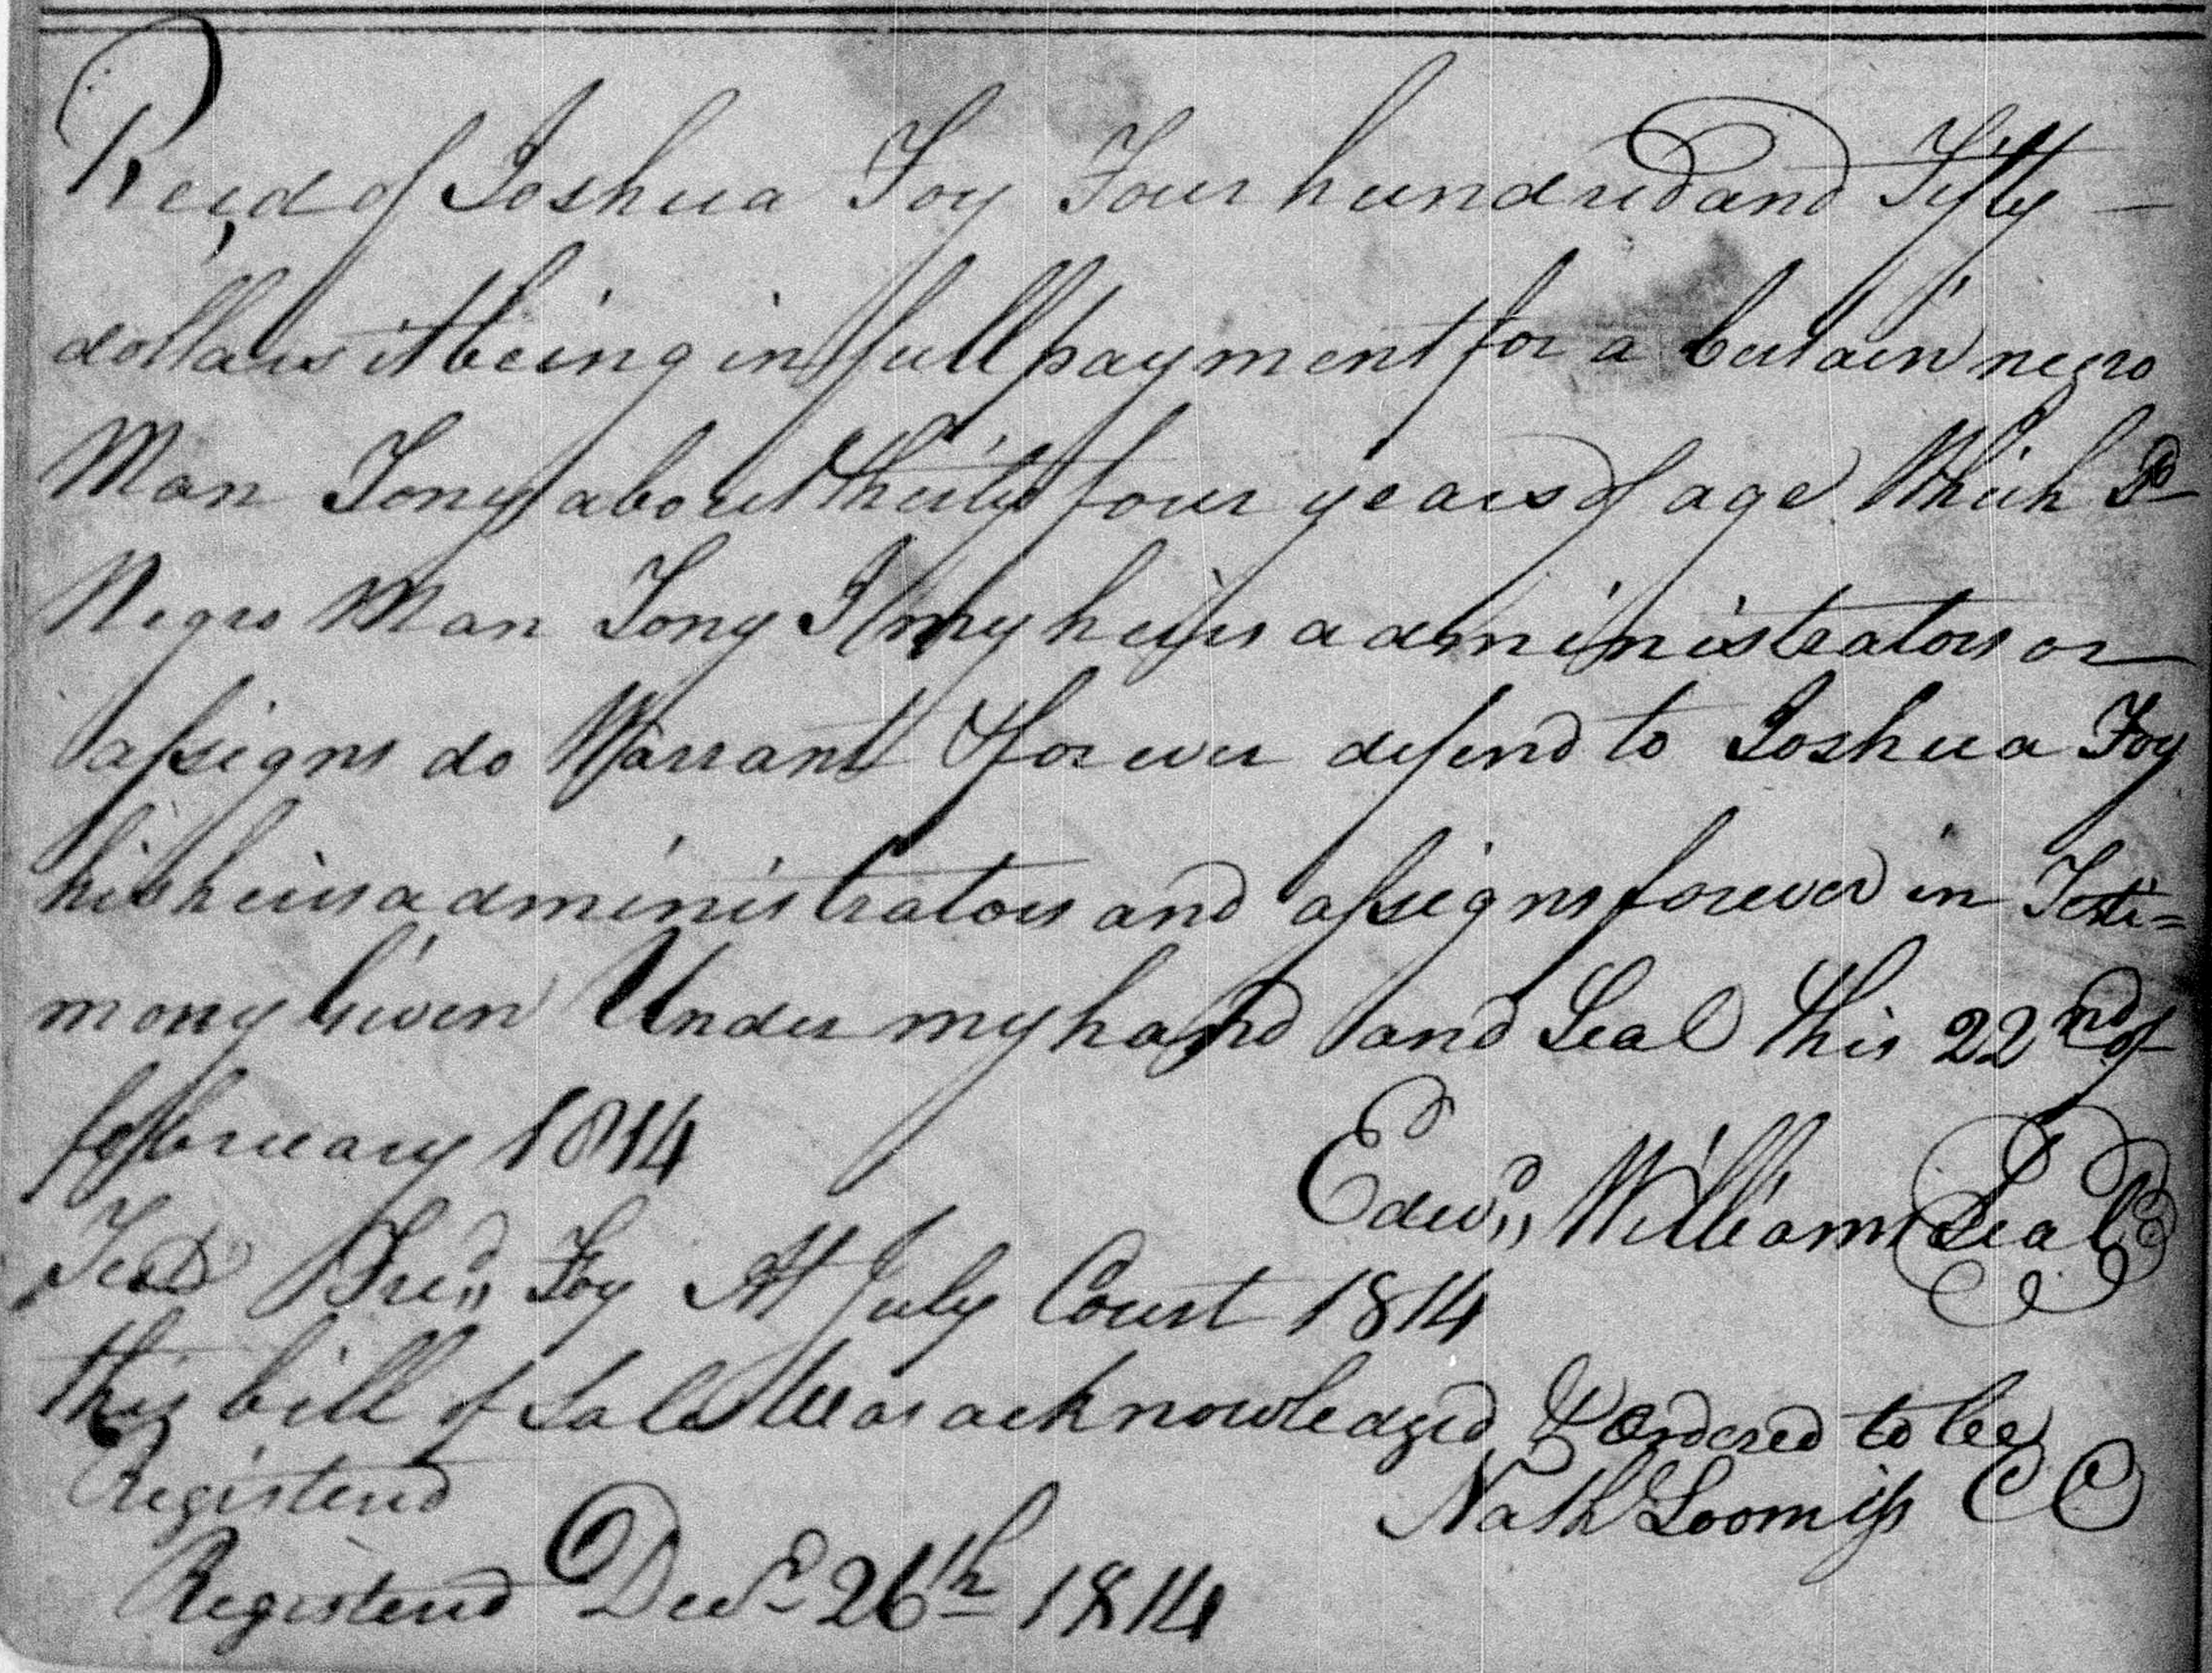 Recd of Joshua Foy Four hundred and Fifty —
dollars it being in full payment for a Certain negro
Man Tony about thirty four years of age Which Sd
Negro Man Tony I my heirs administrators or
assigns do Warrant & forever defend to Joshua Foy
his heirs administrators and assigns forever in Testi=
mony Given Under my hand and Seal this 22nd of
february 1814
Edwd,, Williams Seal
Test Fred,, Foy At July Court 1814
this bill of Sale Was acknowledged & ordered to be
Registerd
Nath Loomiss CC
Registerd Decr 26th 1814